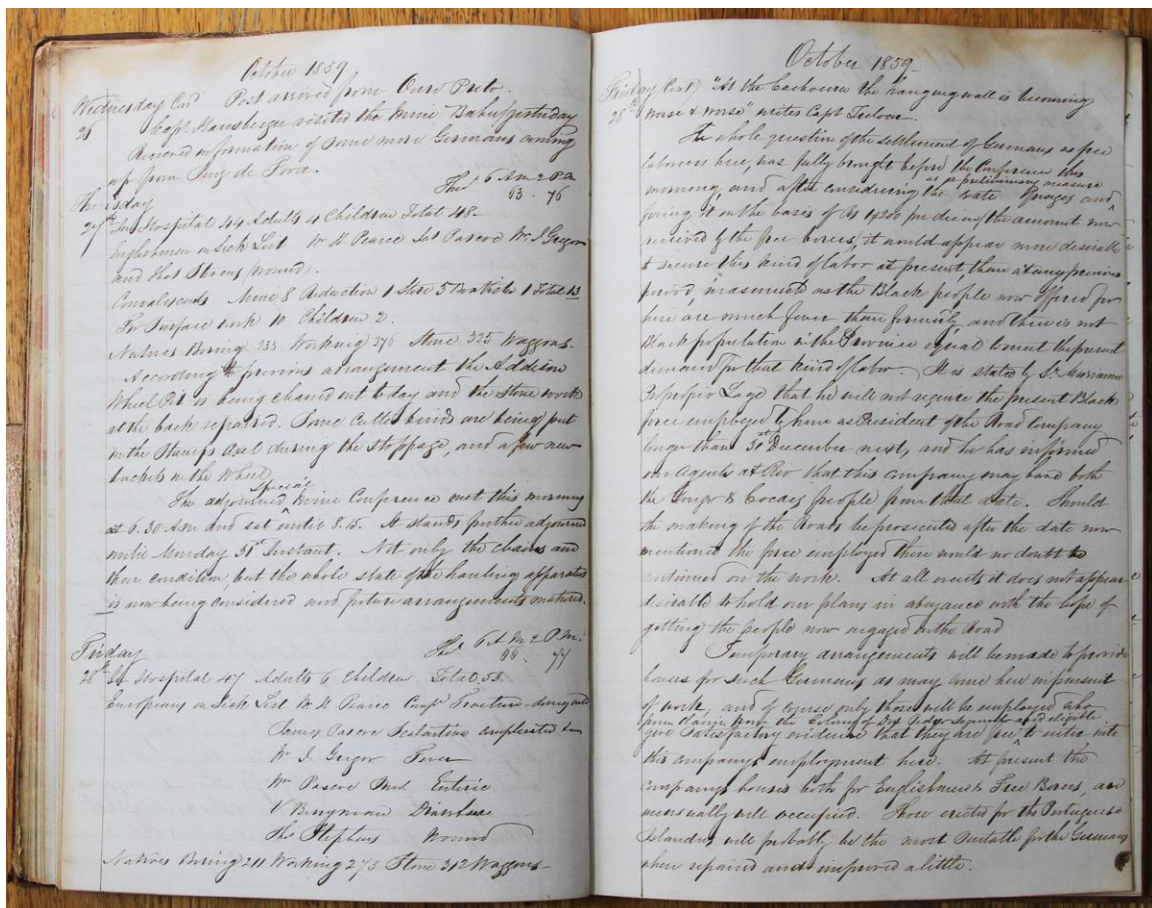 October 1859
Wednesday Cond Post arrived from Ouro Preto.
26 Capt Hansberger visited the Mine Bahu yesterday
Received information of some more Germans coming
up from Juiz de Fora.
Thursday Ther 6 A.M. 2 P.M.
63 - 76
27th In Hospital 44 Adults 4 Children Total 48 -
Englishmen on Sick List W. H. Pearce Jas Pascoe Wm J. Gregor
and Thos Stevens (wound).
Convalescents Mine 8 Reduction 1 Store 3 1 Total 13
For Surface work 10 Children 2.
Natives Boring 233 Working 276 Stone 325 Waggons -
According to previous arrangement the Addison
Wheel Pit is being cleaned out to day and the Stone work
at the back repaired. Some are being put
on the Stamps Axel during the stoppage, and a few new
buckets in the Wheel.
The adjourned Special Mine Conference met this morning
at 6.30 A.M. and sat until 8.15. It stands further adjourned
until Monday 31st Instant. Not only the chains and
their condition, but the whole state of the hauling apparatus
is now being considered and future arrangements matured.
Friday Ther 6 A.M. 2 P.M.
66 - 77
28th In Hospital 47 Adults 6 Children Total 53.
Europeans on Sick List W. H. Pearce Comp Fracture - doing well
James Pascoe Scalatina complicated
Wm J. Gregor Fever
Wm Pascoe Enteric
V. Berryman Diarrhoea
Thos Stephens Wound
Natives Boring 211 Working 273 Stone 312 Waggons -
October 1859
Friday (Cond) "At the the hanging wall is becoming
28th worse & worse" writes Capt Treloar.
The whole question of the settlement of Germans as free
laborers here, was fully brought before the Conference this
morning, and after considering as a preliminary measure the rate of wages and
fixing it on the basis of Rs 1$200 per diem (the amount now
received by the free borers) it would appear more desirable
to secure this kind of labor at present, than at any previous
period, inasmuch as the Black people now offered for
hire are much fewer than formerly, and there is not
Black population in the Province equal to meet the present
demand for that kind of labor. It is stated by Sr Marianno
Procopio Lage that he will not require the present Black
force employed by him as President of the Road Company
longer than 31st December next, and he has informed
our Agents at Rio that this company may have both
the & Cocaes people from that date. Should
the making of the Roads be prosecuted after the date now
mentioned the force employed there would no doubt be
continued on the work. At all events it does not appear
desirable to hold our plans in abeyance with the hope of
getting the people now engaged on the Road
Temporary arrangements will be made to provide
houses for such Germans as may come here in pursuit
of work, and of course only those will be employed who
from the Colony of Dom Pedro Segundo and eligible
give satisfactory evidence that they are free to enter into
this company's employment here. At present the
company's houses both for Englishmen & Free Borers, are
universally well occupied. Those erected for the Portuguese
Islanders will probably be the most suitable for the Germans
when repaired and improved a little.